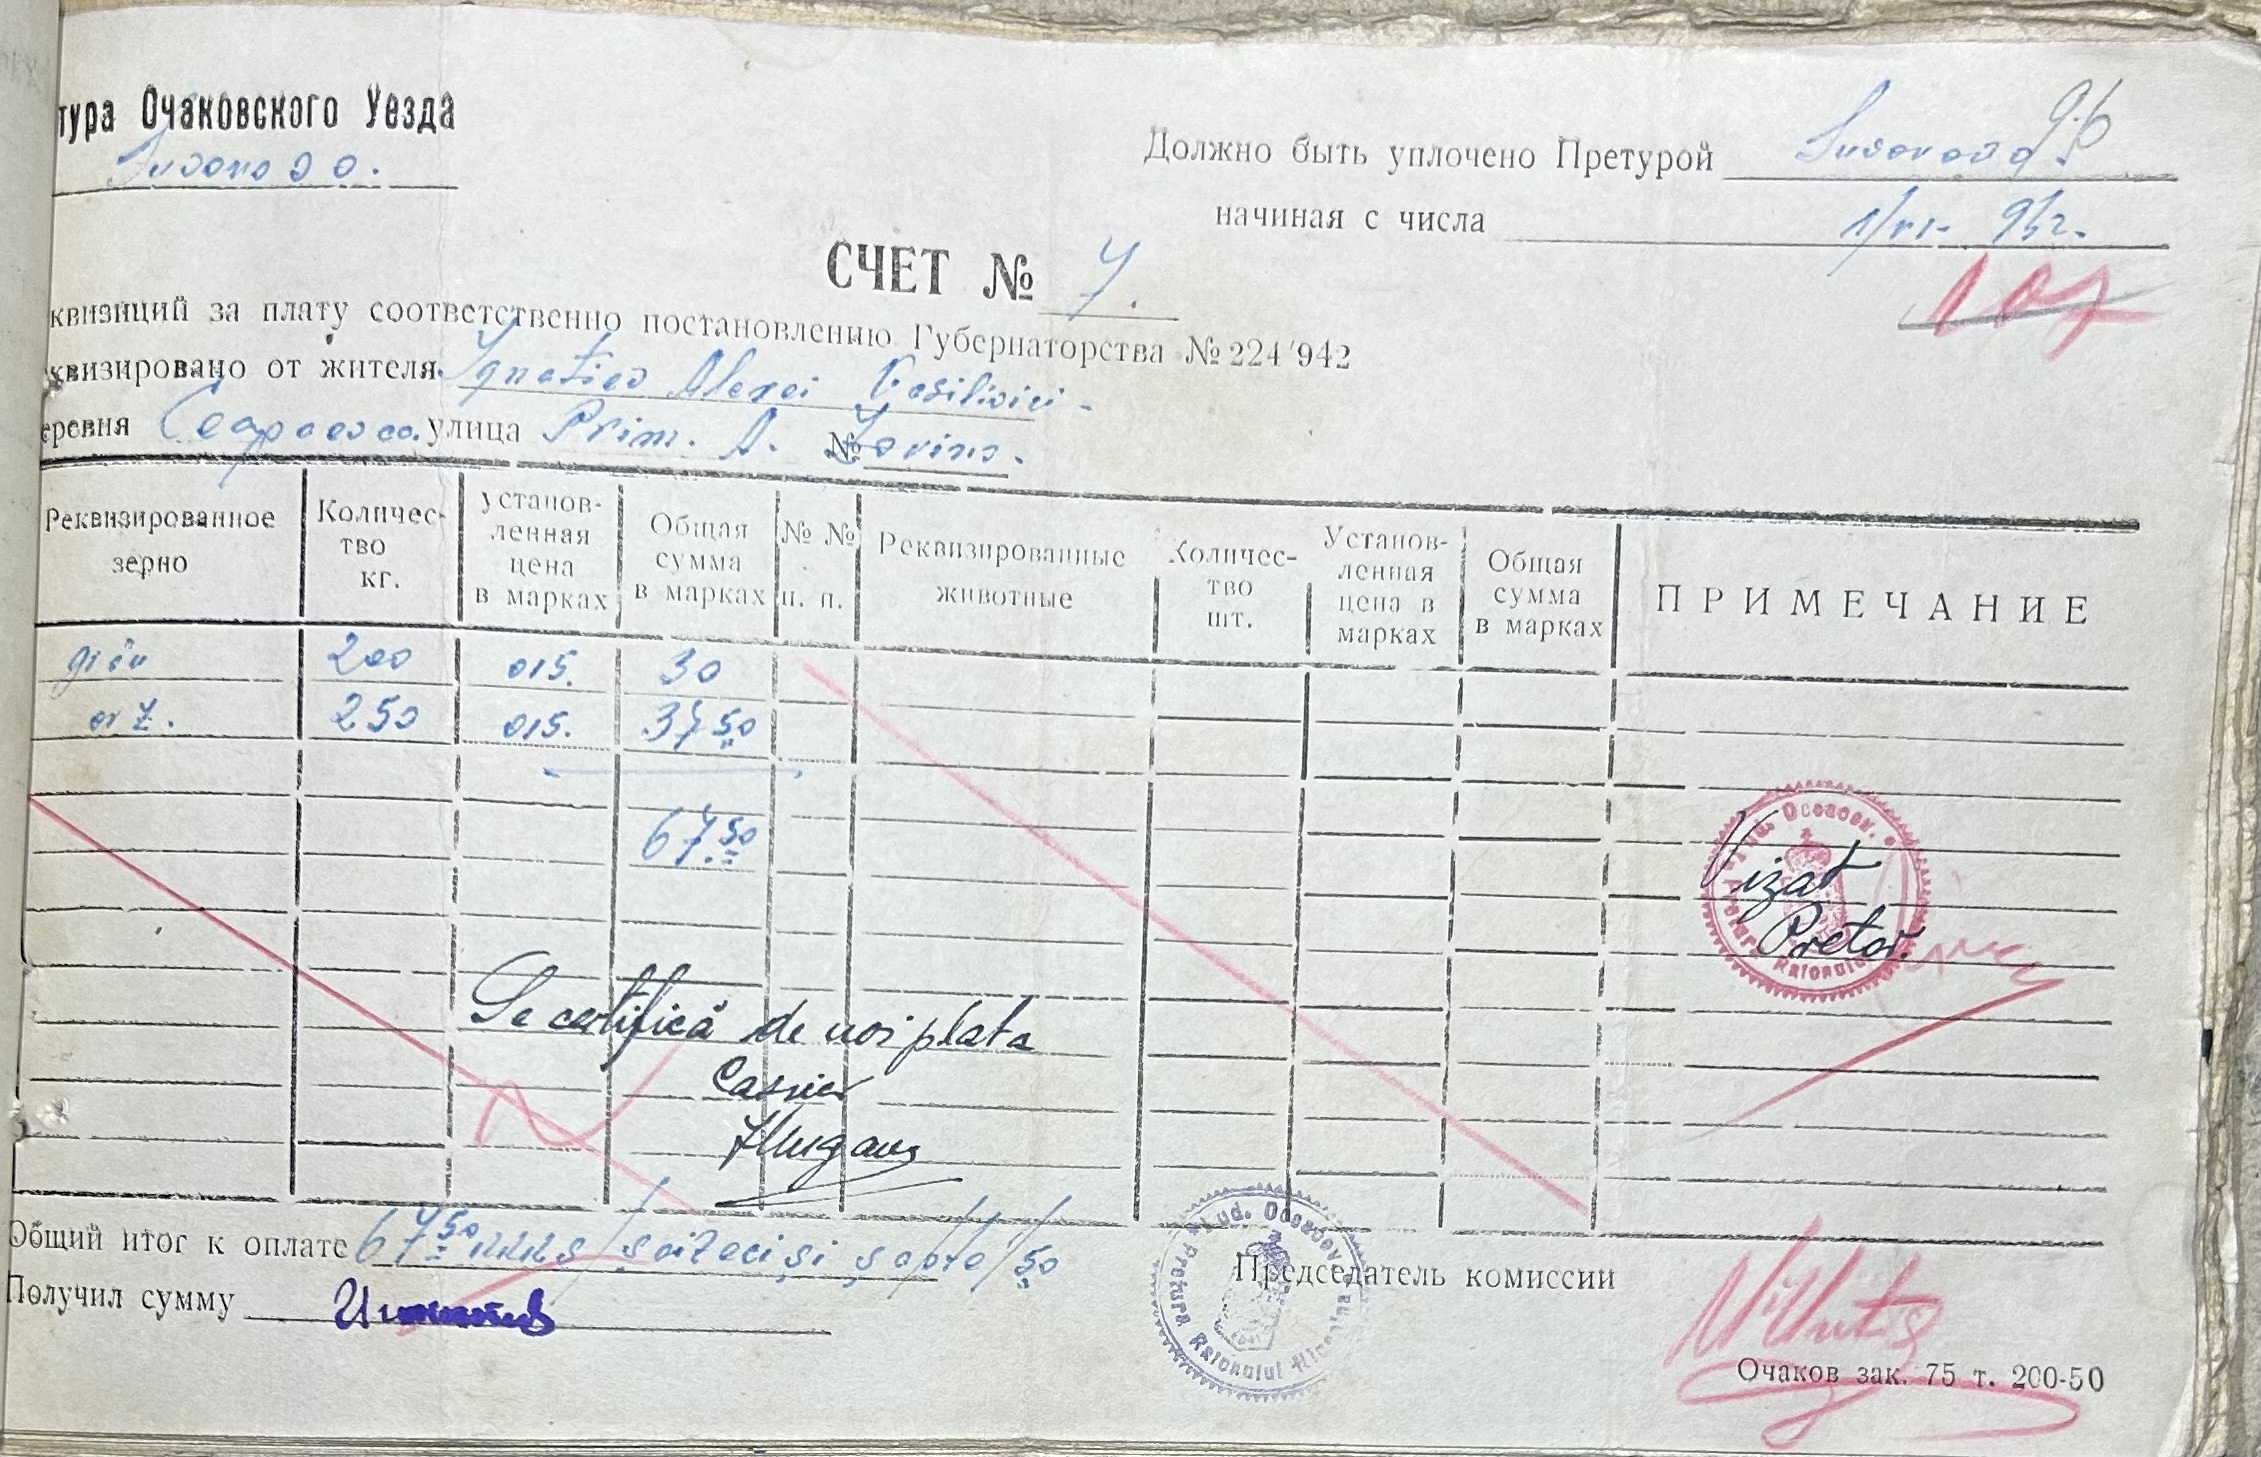 тура Очаковского Уезда
Suvorovo.
96
Должно быть уплочено Претурой Suvorovo.
начиная с числа 1/VI- 942.
107
СЧЕТ № 7.
квизиций за плату соответственно постановлению Губернаторства № 224/942
квизировано от жителя Ignatiev Alexei Vasilivici -
еревня улица Prim. A. №
Реквизированное зерно Количес-тво кг. установ-ленная цена в марках Общая сумма в марках №№ п. п. Реквизированные животные Количес-тво шт. Установ-ленная цена в марках Общая сумма в марках ПРИМЕЧАНИЕ
grâu 200 015. 30
orz. 250 015. 37 50
67.50
Jud. Oceacov.
Pretura Raionului
Vizat
Pretor.
Se certifică de noi plata
Casier
Общий итог к оплате 67 50 mks / șaizeci și șapte / 50
Получил сумму Игнатиев
Председатель комиссии
Jud. Oceacov
Pretura Raionului
Очаков зак. 75 т. 200-50